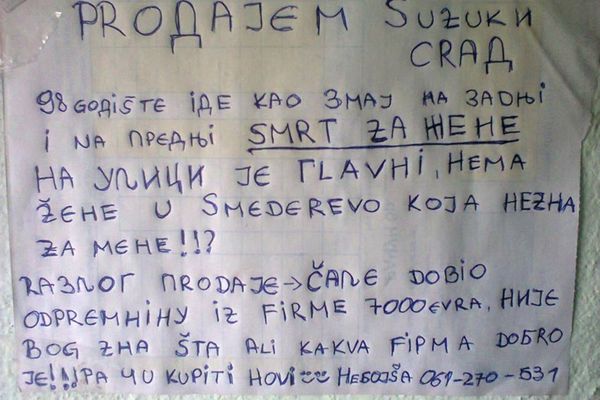 PRОДАЈЕМ SUZUKИ
CRAД
98 GODIŠTE IДЕ КАО ЗМАЈ НА ЗАДЊI
I NA ПРЕДЊI SMRT ZA ЖЕНЕ
НА УЛИЦИ ЈЕ ГLAVНI, НЕМА
ŽЕНЕ U SMEDEREVO КОЈА НЕZНА
ZA МЕНЕ!!!?
RAZЛОГ ПRОДАЈЕ→ČALE DOBIO
ODPREMНINУ IZ FIRME 7000 EVRA, НИЈЕ
BOG ZНA ŠTA ALI KAKVA FIРМА DOБRO
ЈЕ!!!PA ЧU KUPITI НOVI ☺☺ НЕБОЈŠA 061-270-531